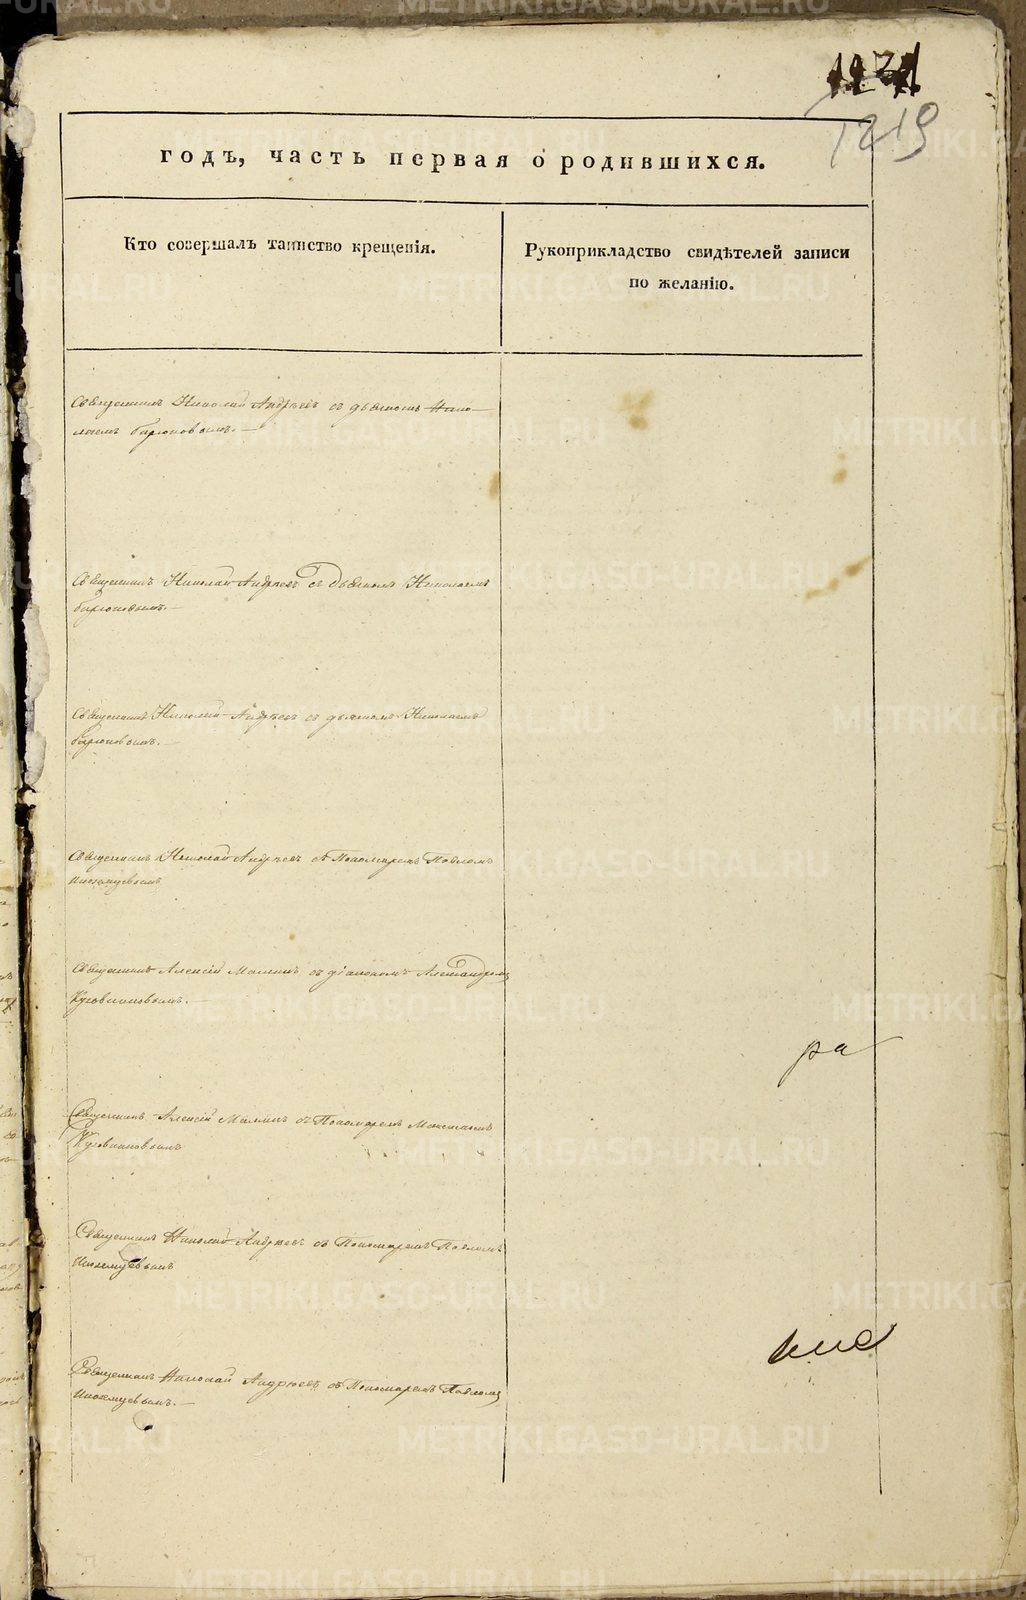 1219
годъ, часть первая о родившихся.
Кто совершалъ таинство крещенія.
Рукоприкладство свидѣтелей записи
по желанію.
Священникъ Николай Андреевъ съ дьякономъ Нико-
лаемъ Бирюковымъ.
Священникъ Николай Андреевъ съ Дьякономъ Николаемъ
Бирюковымъ.
Священникъ Николай Андреевъ съ дьякономъ Николаемъ
Бирюковымъ.
Священникъ Николай Андреевъ съ Пономаремъ Павломъ
Священникъ Алексій Малининъ съ діакономъ Александромъ
ра
Священникъ Алексій съ Пономаремъ
Священникъ Николай Андреевъ съ Пономаремъ Павломъ
Священникъ Николай Андреевъ съ Пономаремъ Павломъ
METRIKI.GASO-URAL.RU